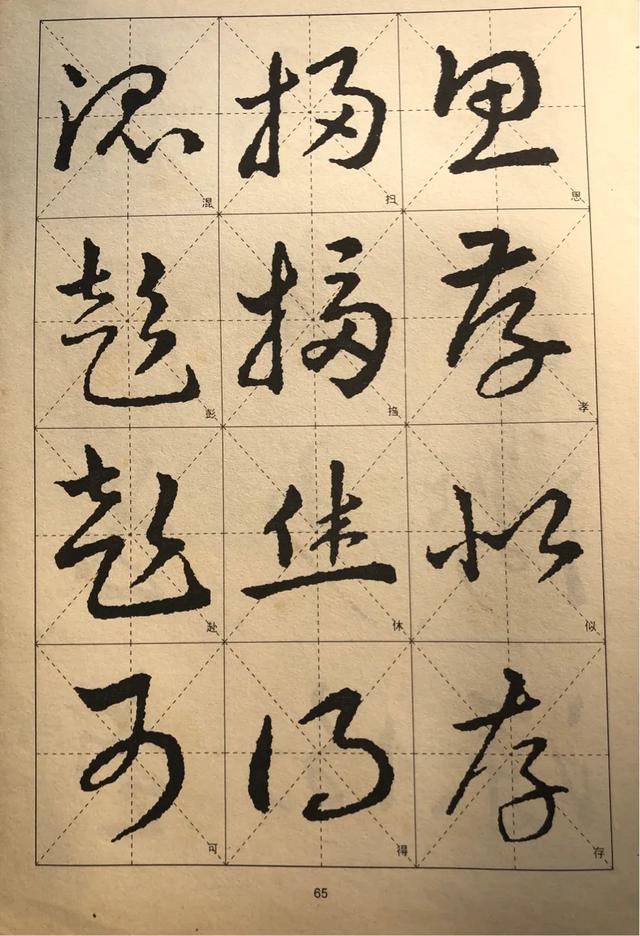 思孝似存
扫休得
混彭赴可
65